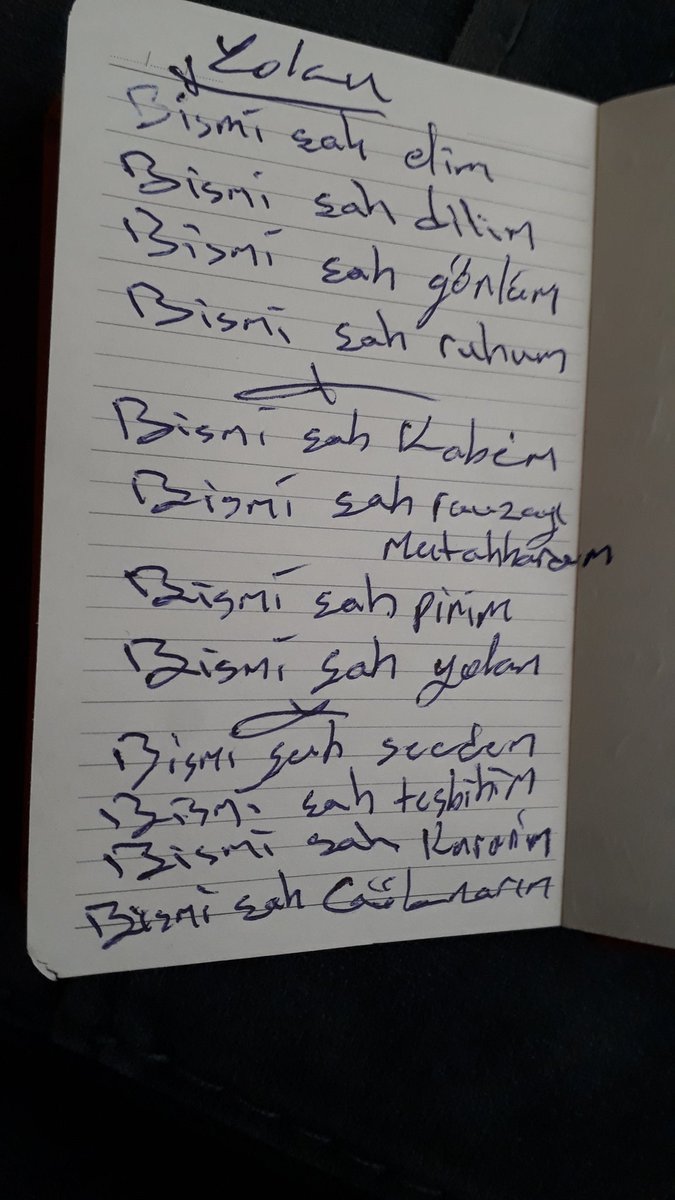 Yolan
Bismi şah elim
Bismi şah dilim
Bismi şah gönlüm
Bismi şah ruhum
Bismi şah Kabem
Bismi şah ravzayı
Mutahharam
Bismi şah pirim
Bismi şah yolan
Bismi şah secdem
Bismi şah tesbihim
Bismi şah
Bismi şah